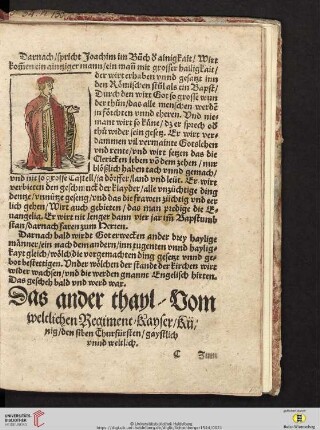 Darnach/spricht Joachim im Büch Einigkait/ Wirt
kom̃en ein ainziger mann/ein man̄ mit grosser hailigkait/
der wirt erhaben vnnd gesetzt inn
den Römischen stül als ein Bapst/
Durch den wirt Got so grosse wun
der thün/das alle menschen werdē
in förchten vnnd eheren. Vnd nie-
mant wirt so küne/dz er sprech ob
hü wider sein gesetz. Er wirt ver-
dammen vil vermainte Gotslehen
vnd rente/vnd wirt setzen das die
Clericken leben vō dem zehen/
blößlich haben tach vnnd gemach/
vnd nit so grosse Castell/ dörffer/land vnd leüt. Er wirt
verbieten den geschmuck der klayder/alle vnzüchtige ding
dentze/vnnütz gesang/vnd das die frawen züchtig vnd er
lich gehen/Wirt auch gebieten/das man predige die E-
uangelia. Er wirt nit lenger dann vier jar im̃ Bapstumb
stan/darnach faren zum Herren.
Darnach bald wirdt Got erwecken ander drey haylige
männer/ein nach dem andern/inn tugenten vnnd haylig-
kayt gleich/wölch die vorgemachten ding gesetz vnnd ge-
bot bestettigen. Vnder wölchen der stande der kirchen wirt
wider wachsen/vnd die werden gnannt Engelisch hirten.
Das gescheh bald vnd werd war.
Das ander thayl/Vom
weltlichen Regiment/Kayser/Kü/
nig/den siben Churfürsten/gaystlich
vnnd weltlich.
C Zum
UNIVERSITÄTS-
BIBLIOTHEK
© Universitätsbibliothek Heidelberg